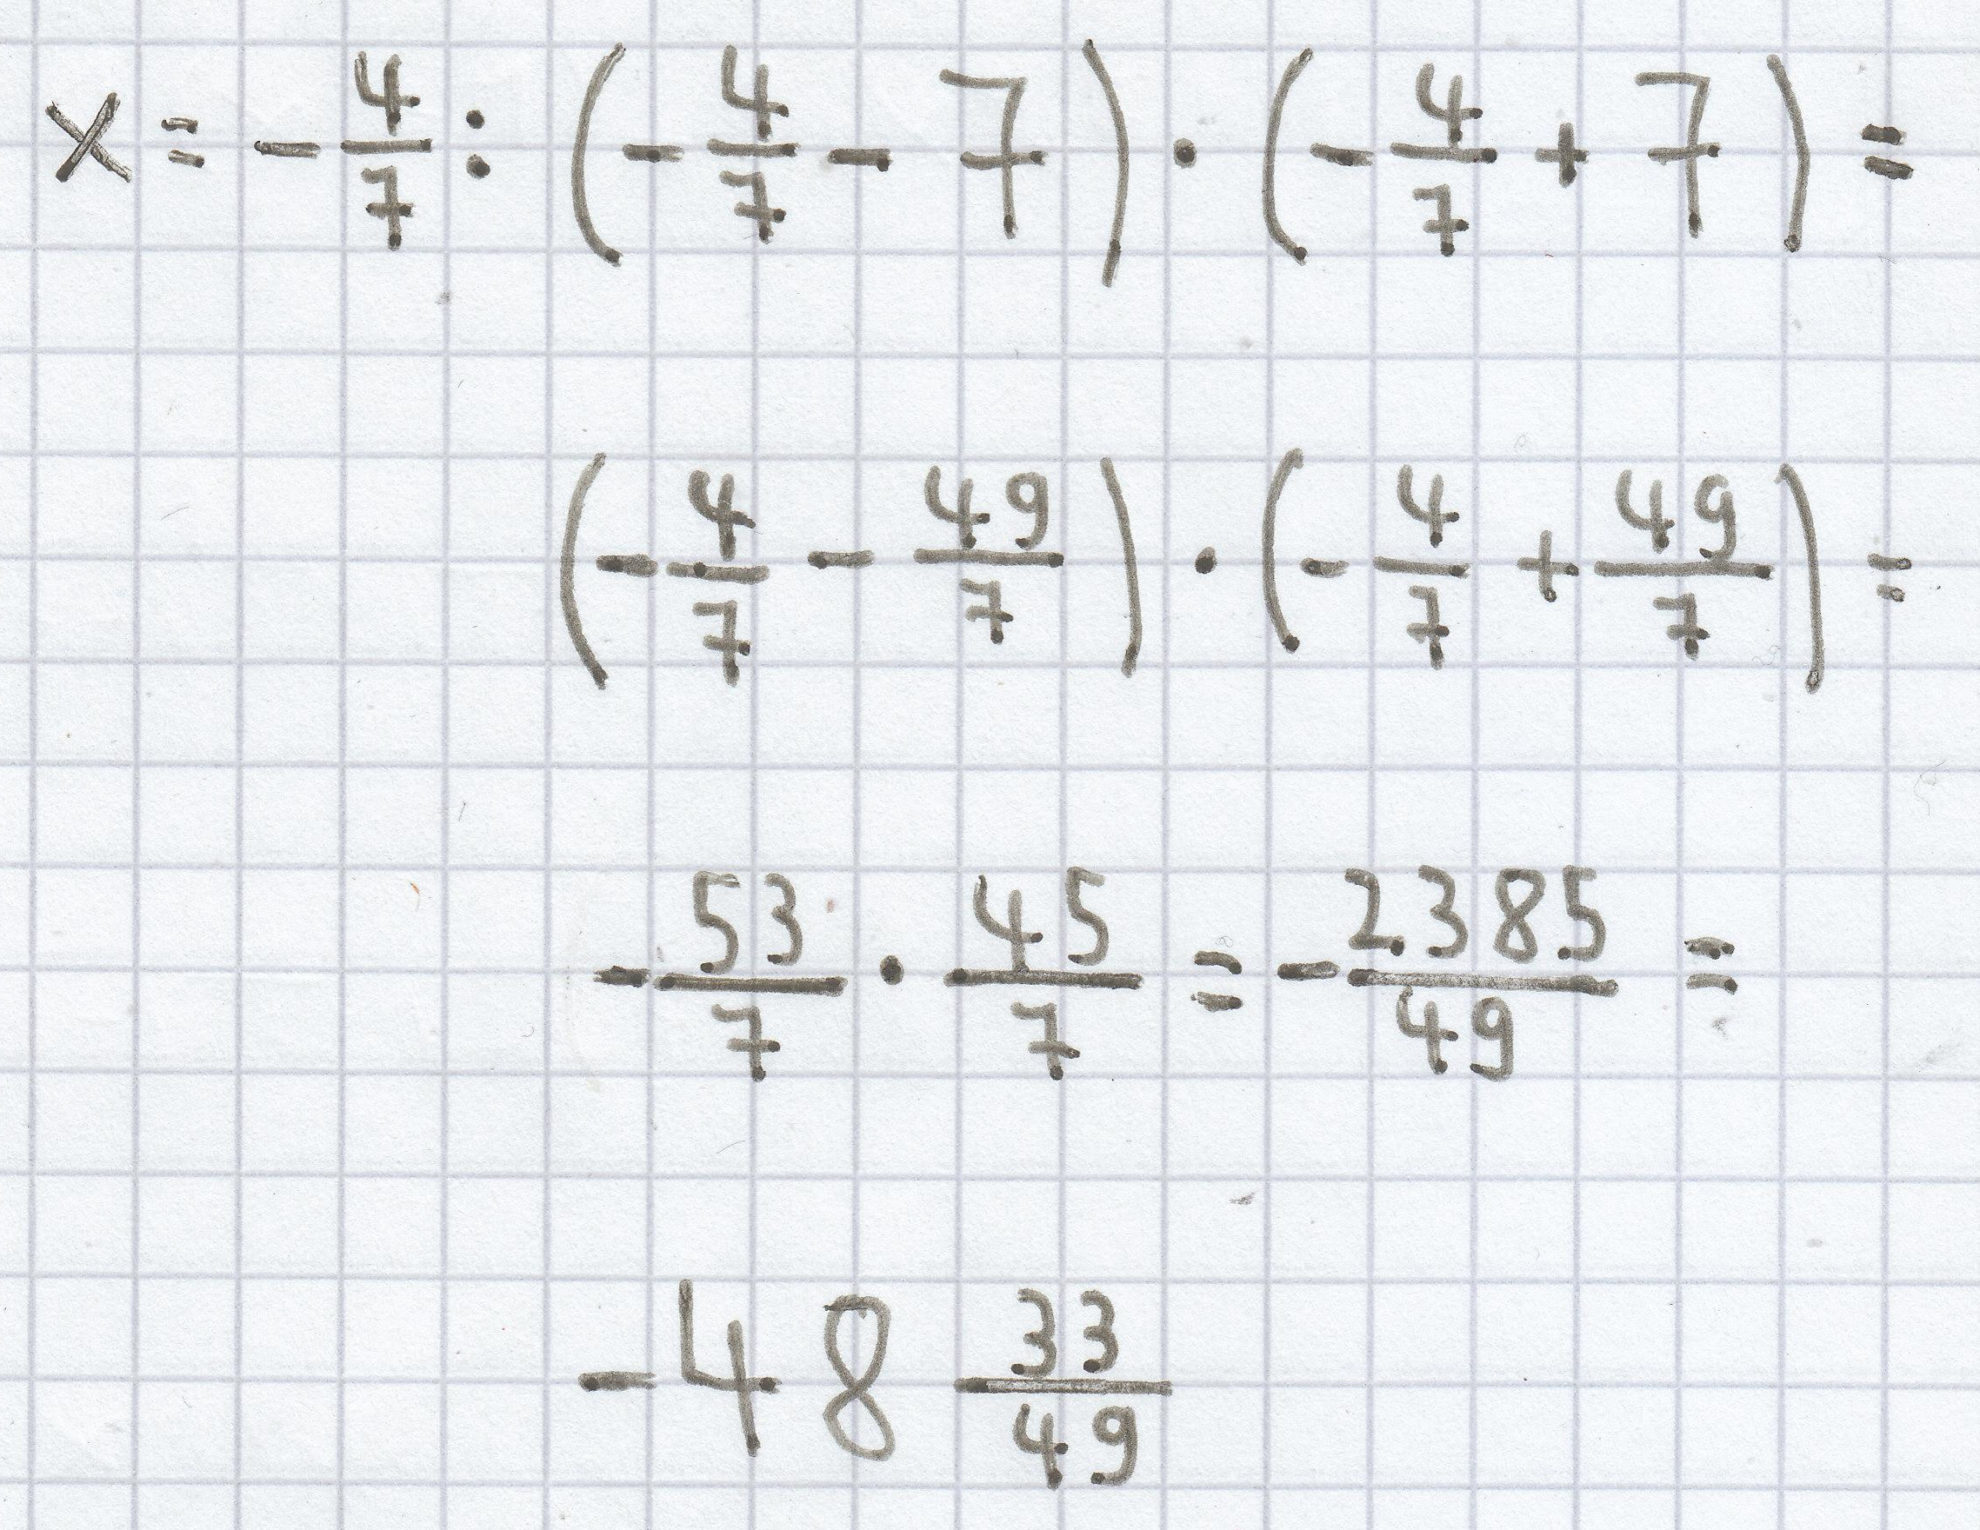 x = - 4/7 : (- 4/7 - 7) · (- 4/7 + 7) =
(- 4/7 - 49/7) · (- 4/7 + 49/7) =
- 53/7 · 45/7 = - 2385/49 =
- 48 33/49